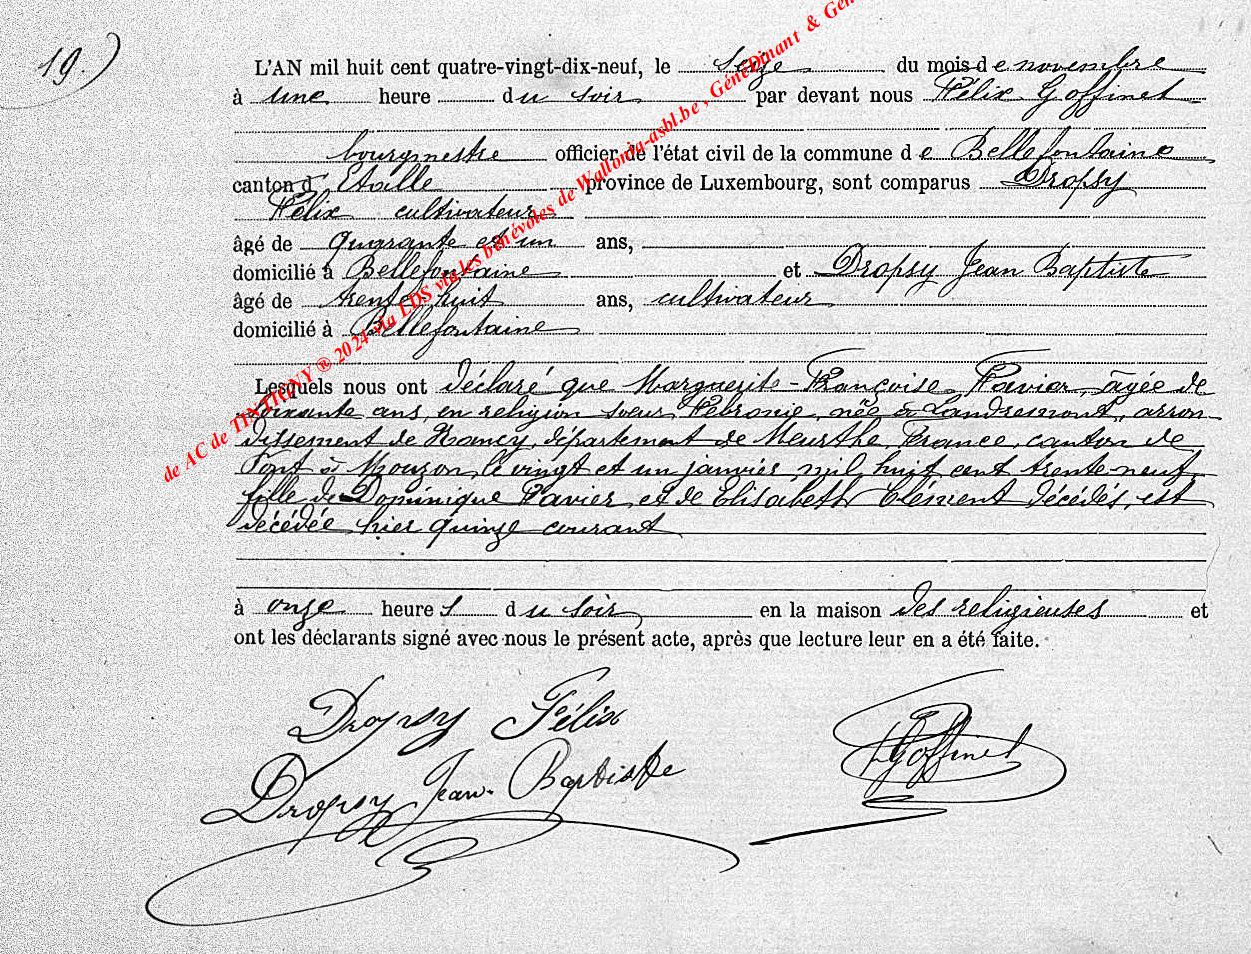 19.)
L'AN mil huit cent quatre-vingt-dix-neuf, le seize du mois de novembre
à une heure du soir par devant nous Félix Goffinet
bourgmestre officier de l'état civil de la commune de Bellefontaine
canton d'Etalle province de Luxembourg, sont comparus Dropsy
Félix cultivateur
âgé de quarante et un ans,
domicilié à Bellefontaine et Dropsy Jean Baptiste
âgé de trente huit ans, cultivateur
domicilié à Bellefontaine
Lesquels nous ont déclaré que Marguerite-Françoise Favier, âgée de
soixante ans, en religion soeur Fébronie, née à Landremont, arron-
dissement de Nancy, département de Meurthe, France, canton de
Pont à Mouzon, le vingt et un janvier mil huit cent trente-neuf,
fille de Dominique Favier et de Elisabeth Clément décédés, est
décédée hier quinze courant
à onze heures du soir en la maison des religieuses et
ont les déclarants signé avec nous le présent acte, après que lecture leur en a été faite.
Dropsy Félix
Dropsy Jean-Baptiste
FGoffinet
de AC de TINTIGNY ® 2024 via LDS via les bénévoles de Wallonia-asbl.be, GénéDinant & Gén